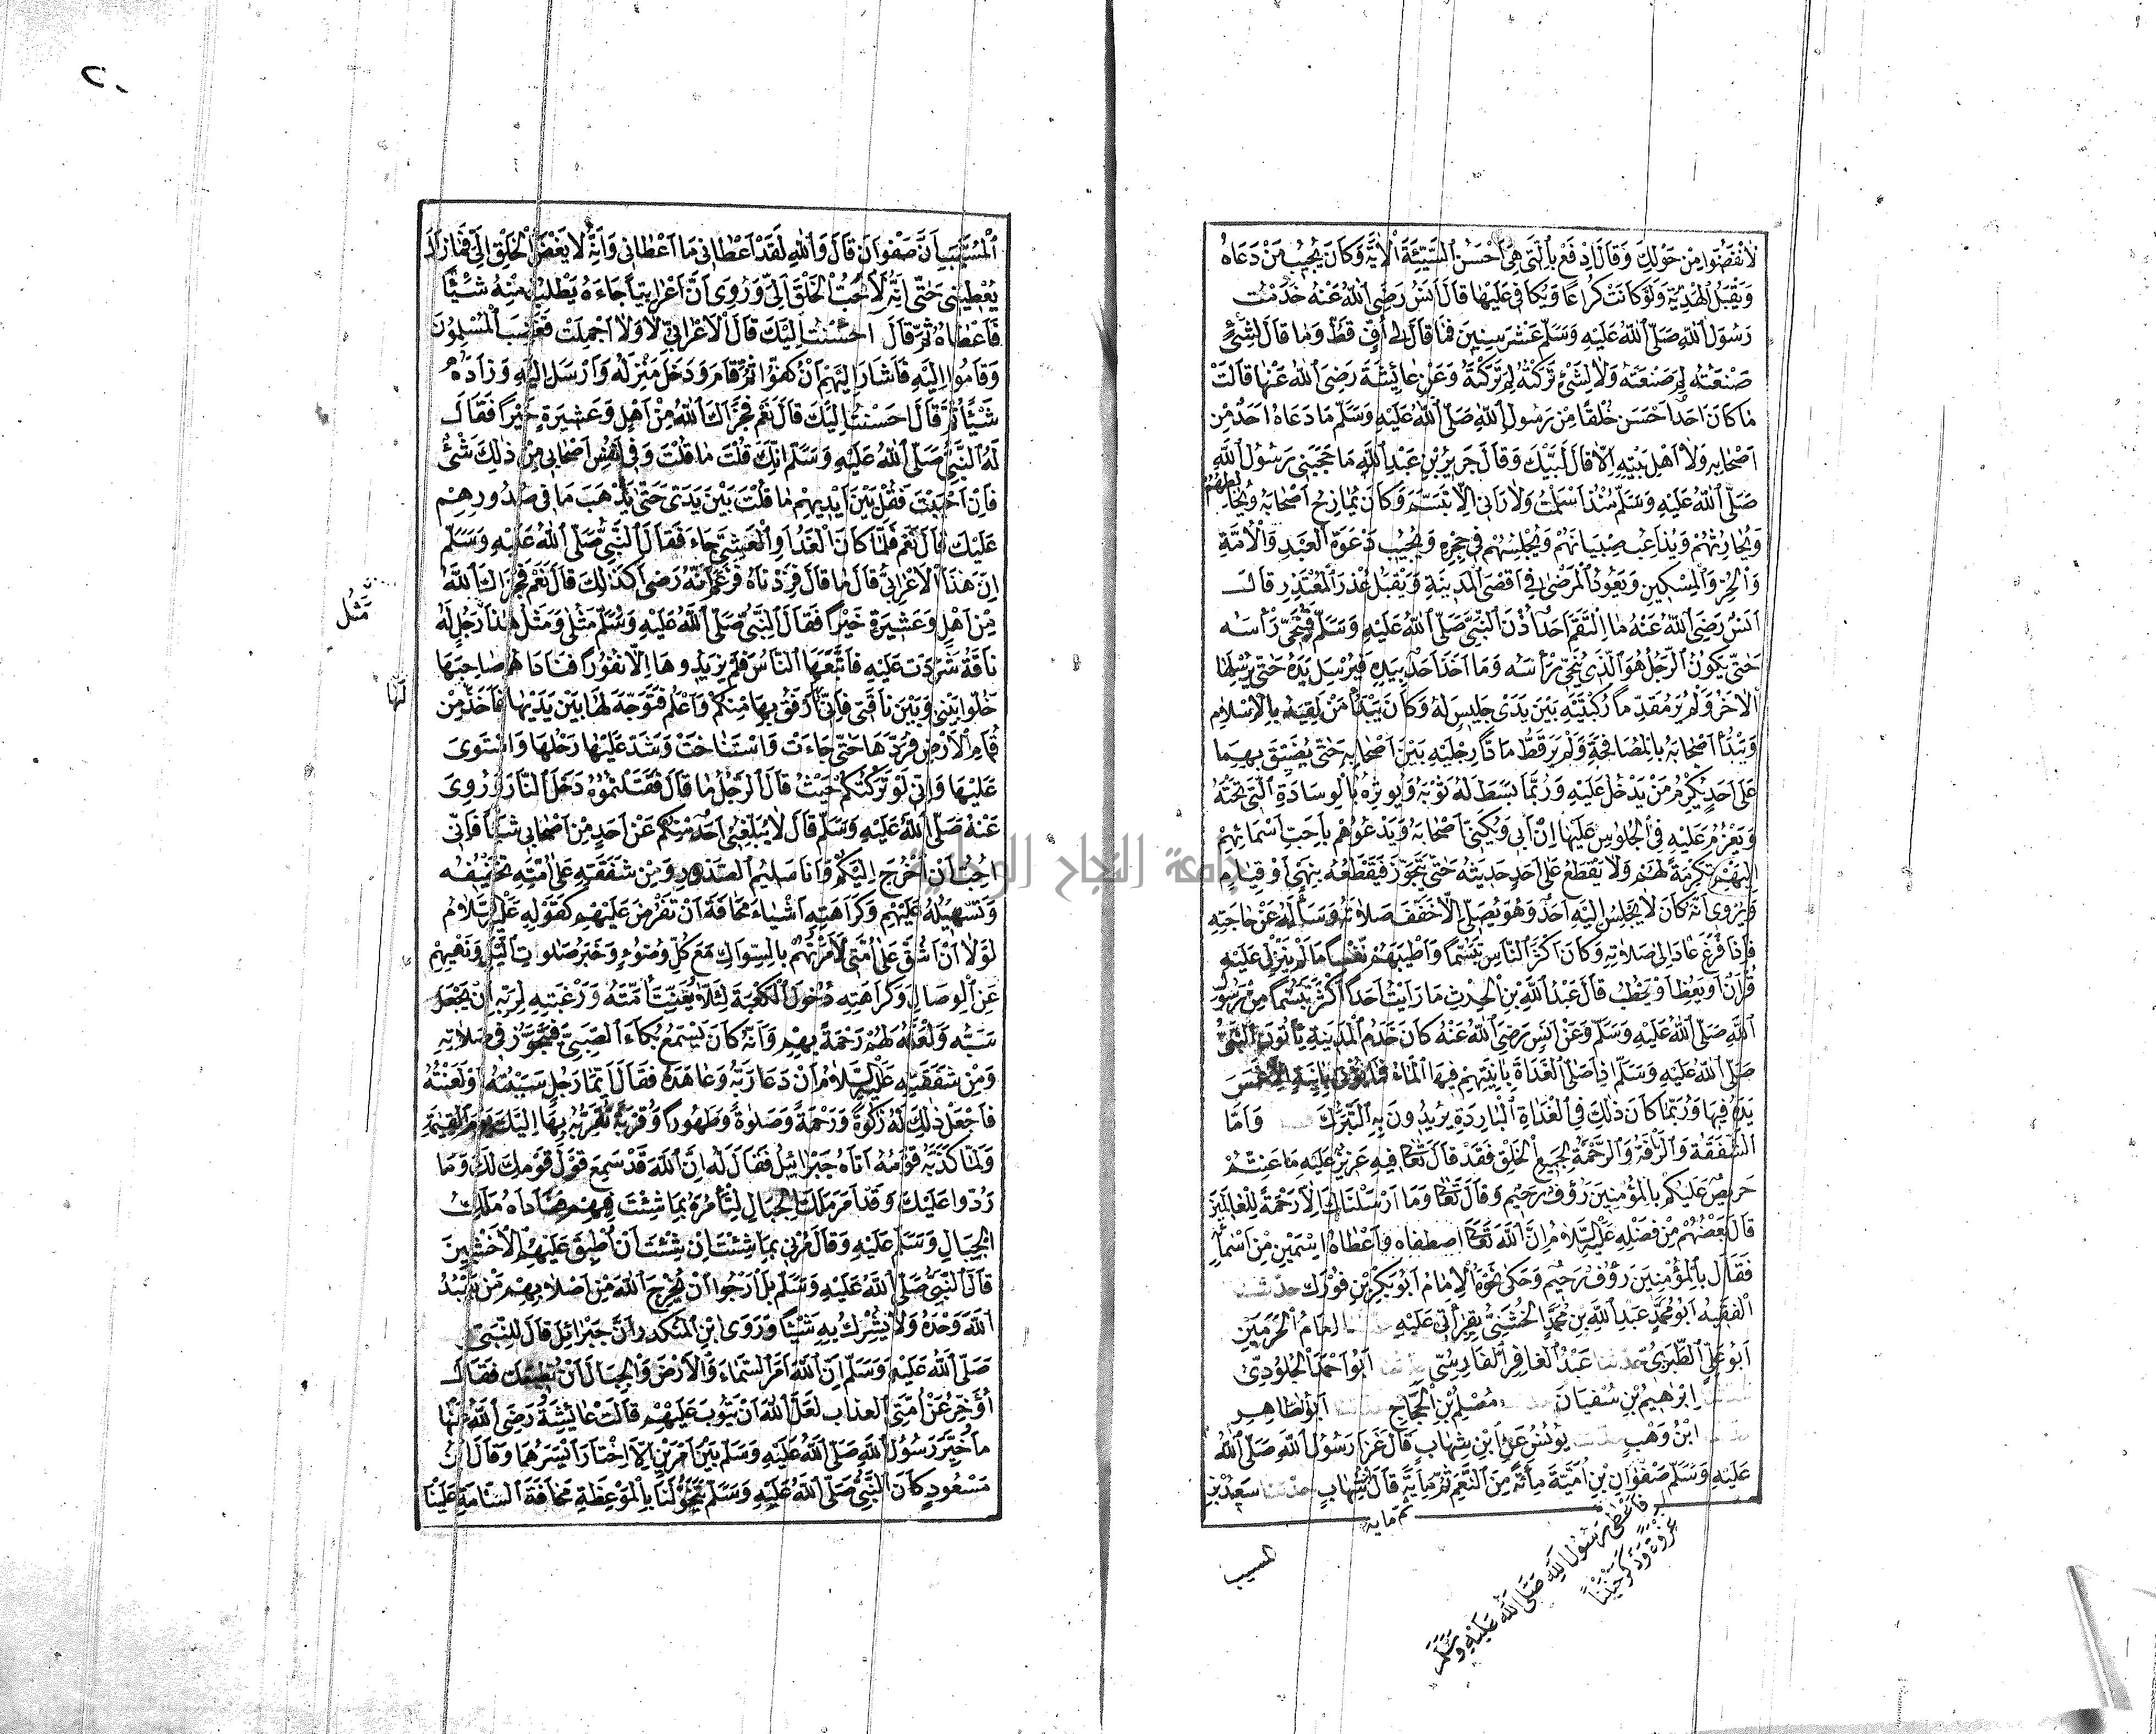 لانفضوا من حولك وقال ادفع بالتي هي احسن السيئة الآية وكان يجيب من دعاه
ويقبل الهدية ولو كانت كراعا ويكافي عليها قال انس رضي الله عنه خدمت
رسول الله صلى الله عليه وسلم عشر سنين فما قال لي أف قط وما قال لشيء
صنعته لم صنعته ولا لشيء تركته لم تركته وعن عائشة رضي الله عنها قالت
ما كان احد احسن خلقا من رسول الله صلى الله عليه وسلم ما دعاه احد من
اصحابه ولا اهل بيته الا قال لبيك وقال جرير بن عبد الله ما حجبني رسول الله
صلى الله عليه وسلم منذ اسلمت ولا رآني الا تبسم وكان يمازح اصحابه ويخالطهم
ويحادثهم ويداعب صبيانهم ويجلسهم في حجره ويجيب دعوة العبد والامة
والحر والمسكين ويعود المرضى في اقصى المدينة ويقبل عذر المعتذر قال
انس رضي الله عنه ما التقم احد أذن النبي صلى الله عليه وسلم فينحي رأسه
حتى يكون الرجل هو الذي ينحي رأسه وما اخذ احد بيده فيرسل يده حتى يرسلها
الآخر ولم ير مقدما ركبتيه بين يدي جليس له وكان يبدأ من لقيه بالاسلام
ويبدأ اصحابه بالمصافحة ولم ير قط مادا رجليه بين اصحابه حتى يضيق بهما
على احد يكرم من يدخل عليه وربما بسط له ثوبه ويوثره بالوسادة التي تحته
ويعزم عليه في الجلوس عليها ان ابى ويكني اصحابه ويدعوهم باحب اسمائهم
اليهم تكرمة لهم ولا يقطع على احد حديثه حتى يتجوز فيقطعه بنهي او قيام
ويروى انه كان لا يجلس اليه احد وهو يصلي الا خفف صلاته وسأله عن حاجته
فاذا فرغ عاد الى صلاته وكان اكثر الناس تبسما واطيبهم نفسا ما لم ينزل عليه
قرآن او يعظ او يخطب قال عبد الله بن الحرث ما رأيت احدا اكثر تبسما من رسول
الله صلى الله عليه وسلم وعن انس رضي الله عنه كان خدم المدينة يأتون النبي
صلى الله عليه وسلم اذا صلى الغداة بآنيتهم فيها الماء فما يؤتى بآنية الا غمس
يده فيها وربما كان ذلك في الغداة الباردة يريدون به التبرك واما
الشفقة والرأفة والرحمة لجميع الخلق فقد قال تعالى فيه عزيز عليه ما عنتم
حريص عليكم بالمؤمنين رؤف رحيم وقال تعالى وما ارسلناك الا رحمة للعالمين
قال بعضهم من فضله عليه السلام ان الله تعالى اصطفاه واعطاه اسمين من اسمائه
فقال بالمؤمنين رؤف رحيم وحكى نحوه الامام ابو بكر بن فورك حدثنا
الفقيه ابو محمد عبد الله بن محمد الخشني بقرأتي عليه امام الحرمين
ابو علي الطبري حدثنا عبد الغافر الفارسي ابو احمد الجلودي
ابرهيم بن سفيان مسلم بن الحجاج ابو الطاهر
ابن وهب يونس عن ابن شهاب قال غزا رسول الله صلى الله
عليه وسلم صفوان بن امية مائة من النعم ثم مائة قال ابن شهاب حدثنا سعيد بن
ثم ماية
فأعطى رسول الله صلى الله عليه وسلم
غزوة وذكر حنينا
المسيب
المسيب ان صفوان قال والله لقد اعطاني ما اعطاني وانه لا بغض الخلق الي فما زال
يعطيني حتى انه لاحب الخلق الي وروي ان اعرابيا جاءه يطلب منه شيئا
فاعطاه ثم قال احسنت اليك قال الاعرابي لا ولا اجملت فغضب المسلمون
وقاموا اليه فاشار اليهم ان كفوا ثم قام ودخل منزله وارسل اليه وزاده
شيئا ثم قال احسنت اليك قال نعم فجزاك الله من اهل وعشيرة خيرا فقال
له النبي صلى الله عليه وسلم انك قلت ما قلت وفي انفس اصحابي من ذلك شيء
فان احببت فقل بين ايديهم ما قلت بين يدي حتى يذهب ما في صدورهم
عليك قال نعم فلما كان الغد او العشي جاء فقال النبي صلى الله عليه وسلم
ان هذا الاعرابي قال ما قال فزدناه فزعم انه رضي اكذلك قال نعم فجزاك الله
من اهل وعشيرة خيرا فقال النبي صلى الله عليه وسلم مثلي ومثل هذا رجل له
مثل
ناقة شردت عليه فاتبعها الناس فلم يزيدوها الا نفورا فناداهم صاحبها
خلوا بيني وبين ناقتي فاني ارفق بها منكم واعلم فتوجه لها بين يديها فاخذ من
لها
قمام الارض فردها حتى جاءت واستناخت وشد عليها رحلها واستوى
عليها واني لو تركتكم حيث قال الرجل ما قال فقتلتموه دخل النار وروي
عنه صلى الله عليه وسلم قال لا يبلغني احد منكم عن احد من اصحابي شيئا فاني
احب ان اخرج اليكم وانا سليم الصدور ومن شفقته على امته تخفيفه
وتسهيله عليهم وكراهته اشياء مخافة ان تفرض عليهم كقوله عليه السلام
لولا ان اشق على امتي لامرتهم بالسواك مع كل وضوء وخبر صلوة الليل ونهيهم
عن الوصال وكراهته دخول الكعبة لئلا يعنت امته ورغبته لربه ان يجعل
سبه ولعنه لهم رحمة بهم وانه كان يسمع بكاء الصبي فيتجوز في صلاته
ومن شفقته عليه السلام ان دعا ربه وعاهده فقال ايما رجل سببته او لعنته
فاجعل ذلك له زكوة ورحمة وصلوة وطهورا وقربة تقربه بها اليك يوم القيمة
ولما كذبه قومه اتاه جبرائيل فقال له ان الله قد سمع قول قومك لك وما
ردوا عليك وقد امر ملك الجبال لتأمره بما شئت فيهم فناداه ملك
الجبال وسلم عليه وقال مرني بما شئت ان شئت ان اطبق عليهم الاخشبين
قال النبي صلى الله عليه وسلم بل ارجوا ان يخرج الله من اصلابهم من يعبد
الله وحده ولا يشرك به شيئا وروى ابن المنكدر ان جبرائيل قال للنبي
صلى الله عليه وسلم ان الله امر السماء والارض والجبال ان تطيعك فقال
أؤخر عن امتي العذاب لعل الله ان يتوب عليهم قالت عائشة رضي الله عنها
ما خير رسول الله صلى الله عليه وسلم بين امرين الا اختار ايسرهما وقال ابن
مسعود كان النبي صلى الله عليه وسلم يتخولنا بالموعظة مخافة السامة علينا
جامعة النجاح الوطنية
٢٠